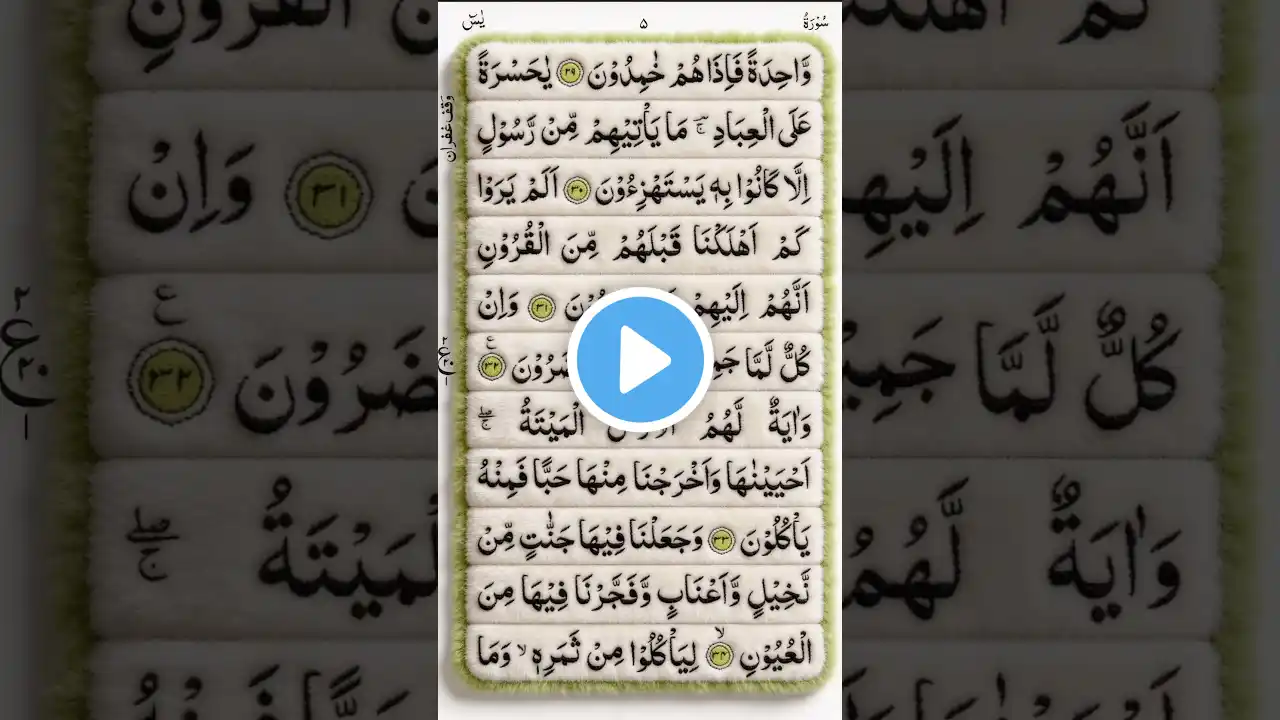 سُوْرَةُ ۵ يٰسٓ
وَّاحِدَةً فَاِذَا هُمْ خٰمِدُوْنَ ۲۹ يٰحَسْرَةً
عَلَى الْعِبَادِ ۚ مَا يَاْتِيْهِمْ مِّنْ رَّسُوْلٍ
وقف غفران
اِلَّا كَانُوْا بِهٖ يَسْتَهْزِءُوْنَ ۳۰ اَلَمْ يَرَوْا
كَمْ اَهْلَكْنَا قَبْلَهُمْ مِّنَ الْقُرُوْنِ
اَنَّهُمْ اِلَيْهِمْ ۳۱ وَاِنْ
كُلٌّ لَّمَّا ۳۲ ع
وَاٰيَةٌ لَّهُمُ الْمَيْتَةُ ۚۖ
اَحْيَيْنٰهَا وَاَخْرَجْنَا مِنْهَا حَبًّا فَمِنْهُ
يَاْكُلُوْنَ ۳۳ وَجَعَلْنَا فِيْهَا جَنّٰتٍ مِّنْ
نَّخِيْلٍ وَّاَعْنَابٍ وَّفَجَّرْنَا فِيْهَا مِنَ
الْعُيُوْنِ ۳۴ۙ لِيَاْكُلُوْا مِنْ ثَمَرِهٖ ۙ وَمَا